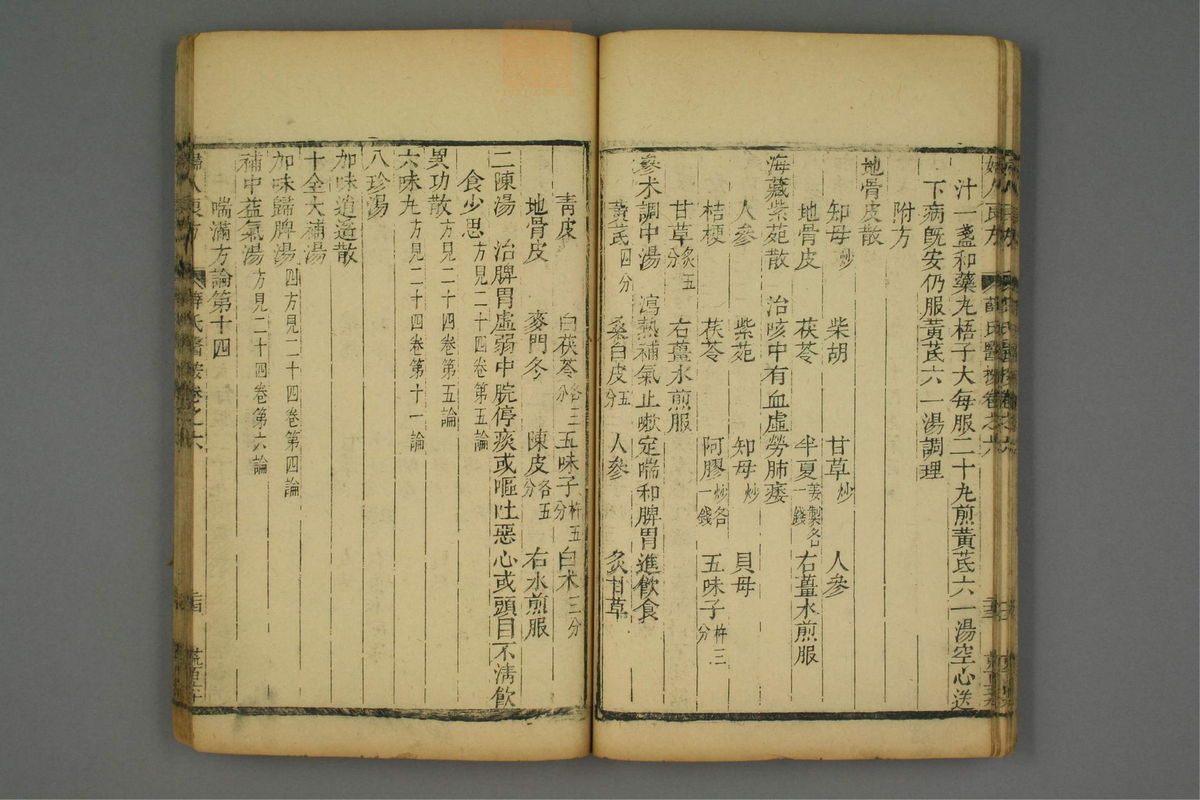 汁一盞和藥丸梧子大每服二十丸煎黃芪六一湯空心送
下病既安仍服黃芪六一湯調理
附方
地骨皮散
知母炒 柴胡 甘草炒 人參
地骨皮 茯苓 半夏姜製各一錢 右薑水煎服
海藏紫苑散 治咳中有血虛勞肺痿
人參 紫苑 知母炒 貝母
桔梗 茯苓 阿膠炒各一錢 五味子杵三分
甘草炙五分 右薑水煎服
參术調中湯 瀉熱補氣止嗽定喘和脾胃進飲食
黃芪四分 桑白皮五分 人參 炙甘草
青皮 白茯苓各三分 五味子杵五分 白术三分
地骨皮 麥門冬 陳皮各五分 右水煎服
二陳湯 治脾胃虛弱中脘停痰或嘔吐惡心或頭目不清飲
食少思方見二十四卷第五論
異功散方見二十四卷第五論
六味丸方見二十四卷第十一論
八珍湯
加味逍遙散
十全大補湯
加味歸脾湯四方見二十四卷第四論
補中益氣湯方見二十四卷第六論
喘滿方論第十四
婦人良方 薛氏醫按卷之六